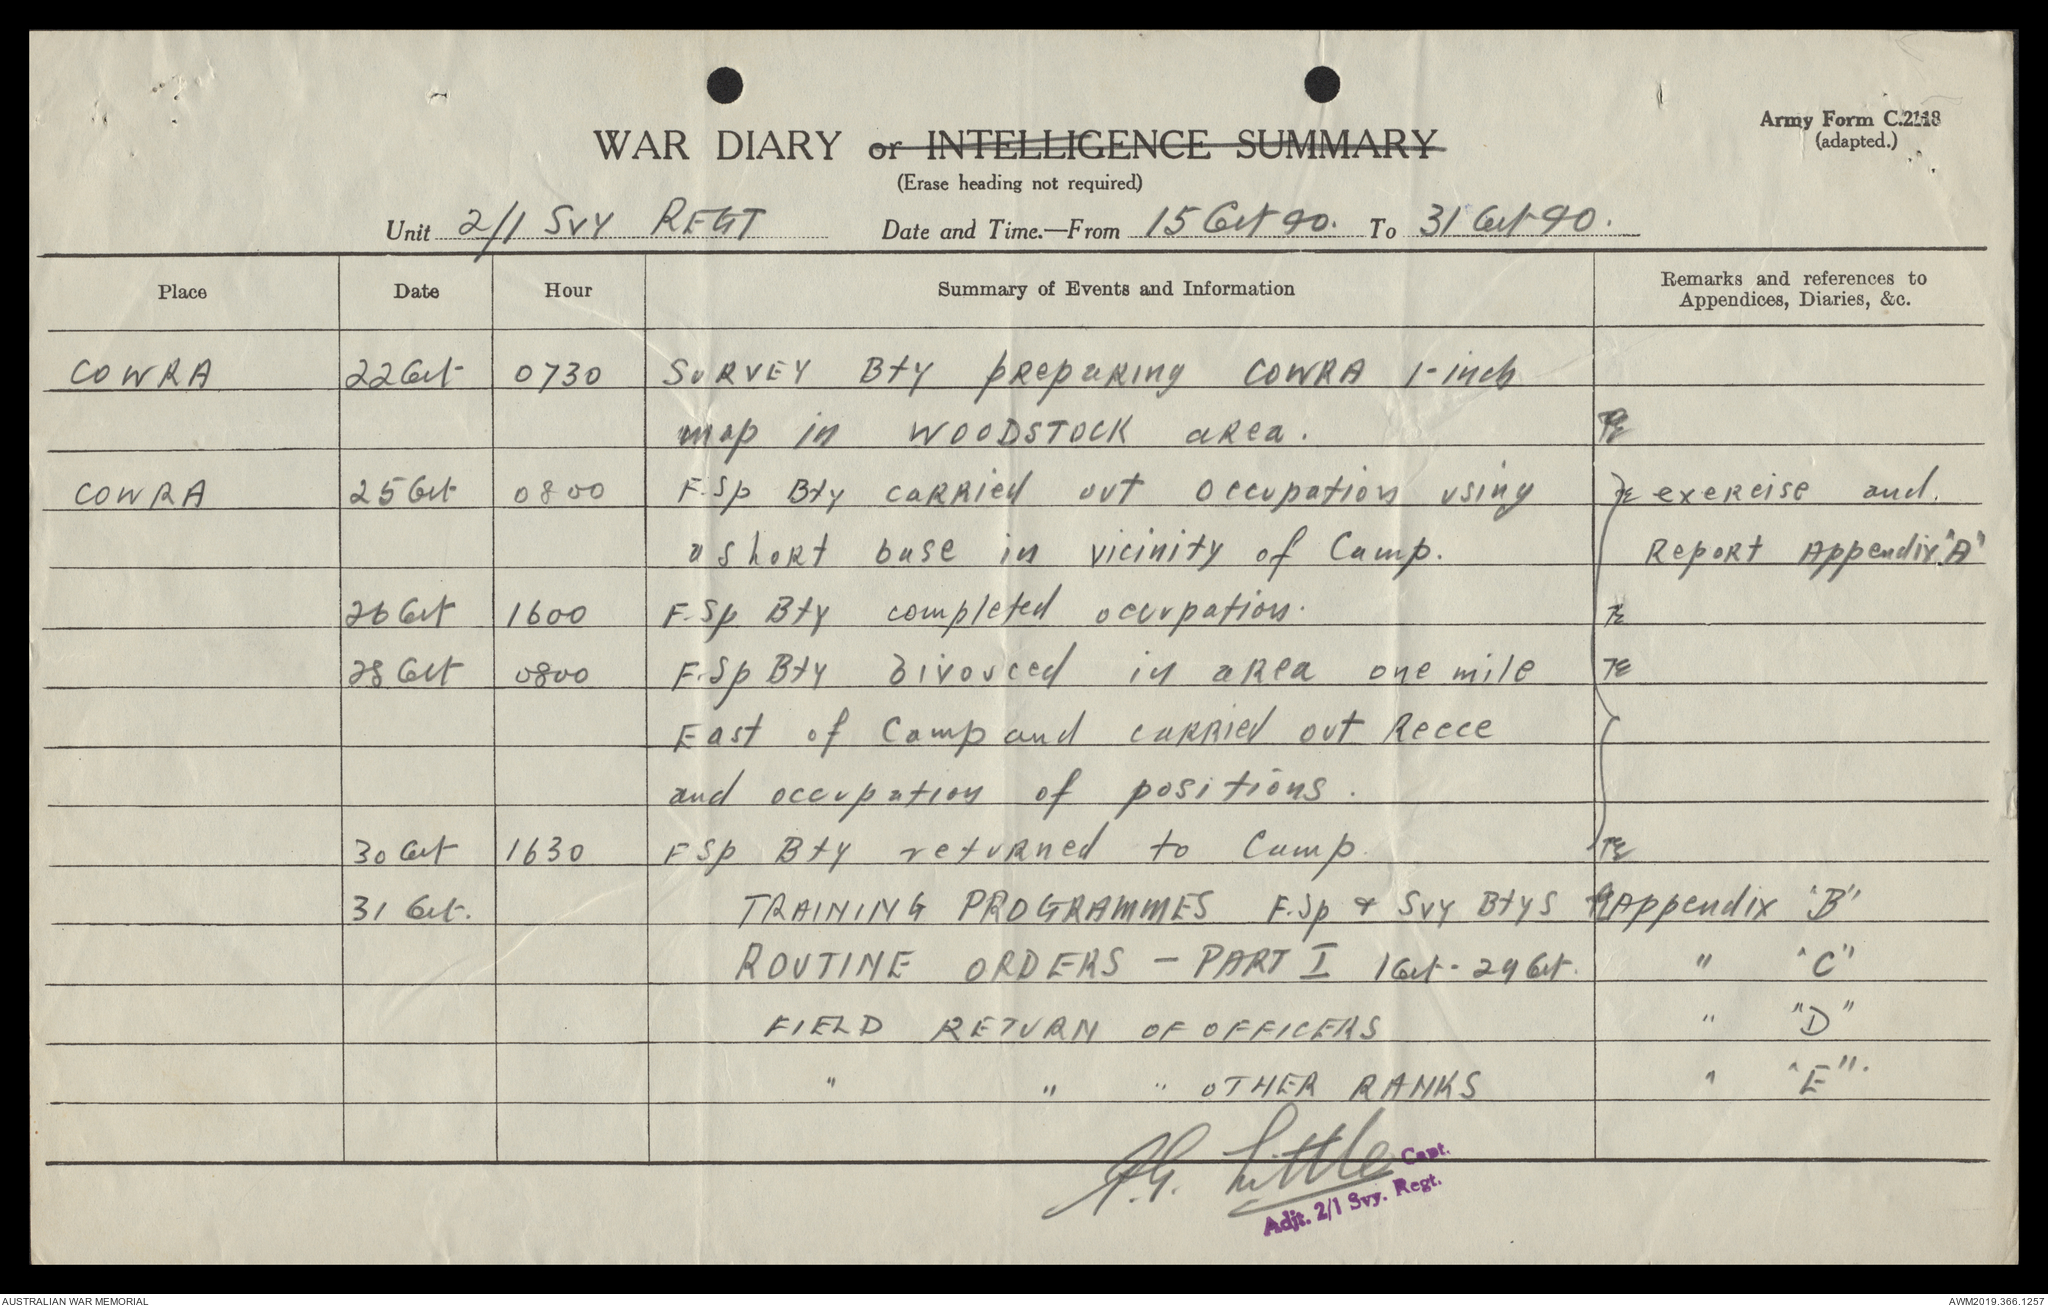 Army Form C.2118
(adapted.)
WAR DIARY or INTELLIGENCE SUMMARY
(Erase heading not required)
Unit 2/1 Svy REGT Date and Time.—From 15 Oct 40. To 31 Oct 40.
Place Date Hour Summary of Events and Information Remarks and references to Appendices, Diaries, &c.
COWRA 22 Oct 0730 SURVEY Bty preparing COWRA 1-inch
map in WOODSTOCK area.
COWRA 25 Oct 0800 F.Sp Bty carried out occupation using exercise and
a short base in vicinity of Camp. Report Appendix "A"
26 Oct 1600 F.Sp Bty completed occupation.
28 Oct 0800 F.Sp Bty bivouced in area one mile
East of Camp and carried out Recce
and occupation of positions.
30 Oct 1630 F Sp Bty returned to Camp.
31 Oct. TRAINING PROGRAMMES F.Sp & Svy Btys Appendix "B"
ROUTINE ORDERS - PART I 1 Oct - 29 Oct. " "C"
FIELD RETURN OF OFFICERS " "D"
" " " OTHER RANKS " "E".
Little Capt.
Adjt. 2/1 Svy. Regt.
AUSTRALIAN WAR MEMORIAL AWM2019.366.1257